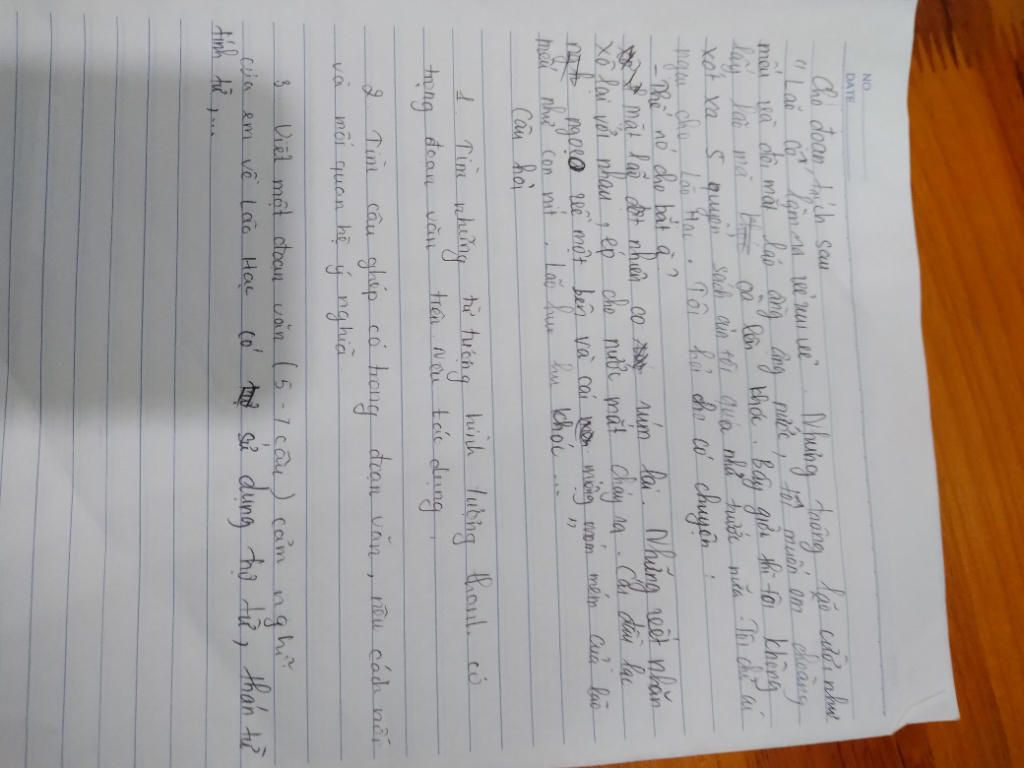 NO.
DATE
Cho đoạn trích sau
"Lão cố làm ra vẻ vui vẻ. Nhưng trông lão cười như
mếu và đôi mắt lão ầng ậng nước, tôi muốn ôm choàng
lấy lão mà oà lên khóc. Bây giờ thì tôi không
xót xa 5 quyển sách của tôi quá như trước nữa. Tôi chỉ ái
ngại cho Lão Hạc. Tôi hỏi cho có chuyện:
- Thế nó cho bắt à?
mặt lão đột nhiên co rúm lại. Những vết nhăn
xô lại với nhau, ép cho nước mắt chảy ra. Cái đầu lão
ngoẹo về một bên và cái miệng móm mém của lão
mếu như con nít. Lão hu hu khóc..."
Câu hỏi
1. Tìm những từ tượng hình tượng thanh. có
trong đoạn văn trên nêu tác dụng.
2. Tìm câu ghép có trong đoạn văn, nêu cách nối
và mối quan hệ ý nghĩa
3. Viết một đoạn văn (5-7 câu) cảm nghĩ
của em về Lão Hạc có sử dụng trợ từ, thán từ
tình từ,...